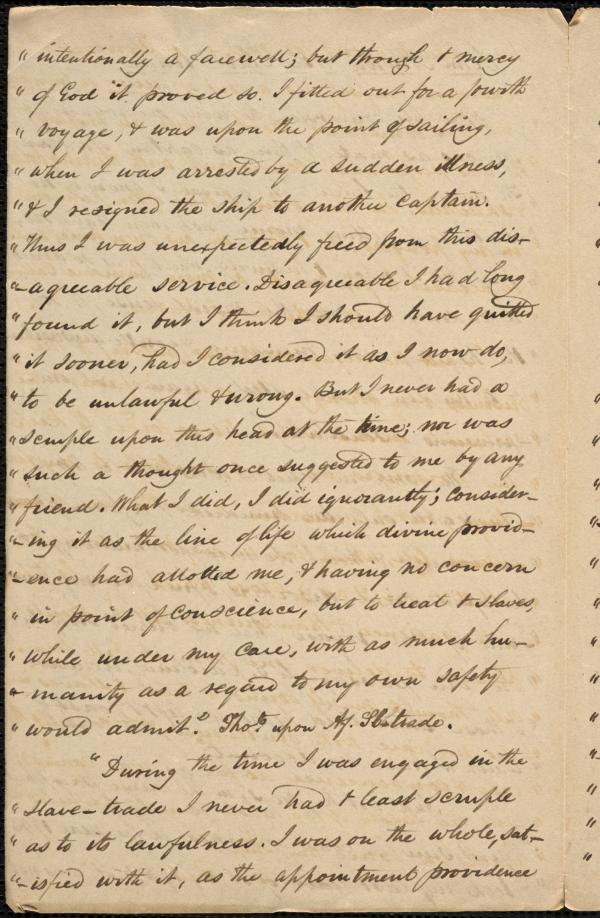 " intentionally a farewell; but through t mercy
" of God it proved so. I fitted out for a fourth
" voyage, & was upon the point of sailing,
" when I was arrested by a sudden illness,
" & I resigned the ship to another captain.
" Thus I was unexpectedly freed from this dis-
"-agreeable service. Disagreeable I had long
" found it, but I think I should have quitted
" it sooner, had I considered it as I now do,
" to be unlawful & wrong. But I never had a
" scruple upon this head at the time; nor was
" such a thought once suggested to me by any
" friend. What I did, I did ignorantly; consider-
"-ing it as the line of life which divine provid-
"-ence had allotted me, & having no concern
" in point of conscience, but to treat t slaves,
" while under my care, with as much hu-
"-manity as a regard to my own safety
" would admit." Thots upon Af. Sl. trade.
" During the time I was engaged in the
" slave-trade I never had t least scruple
" as to its lawfulness. I was on the whole, sat-
"-isfied with it, as the appointment providence